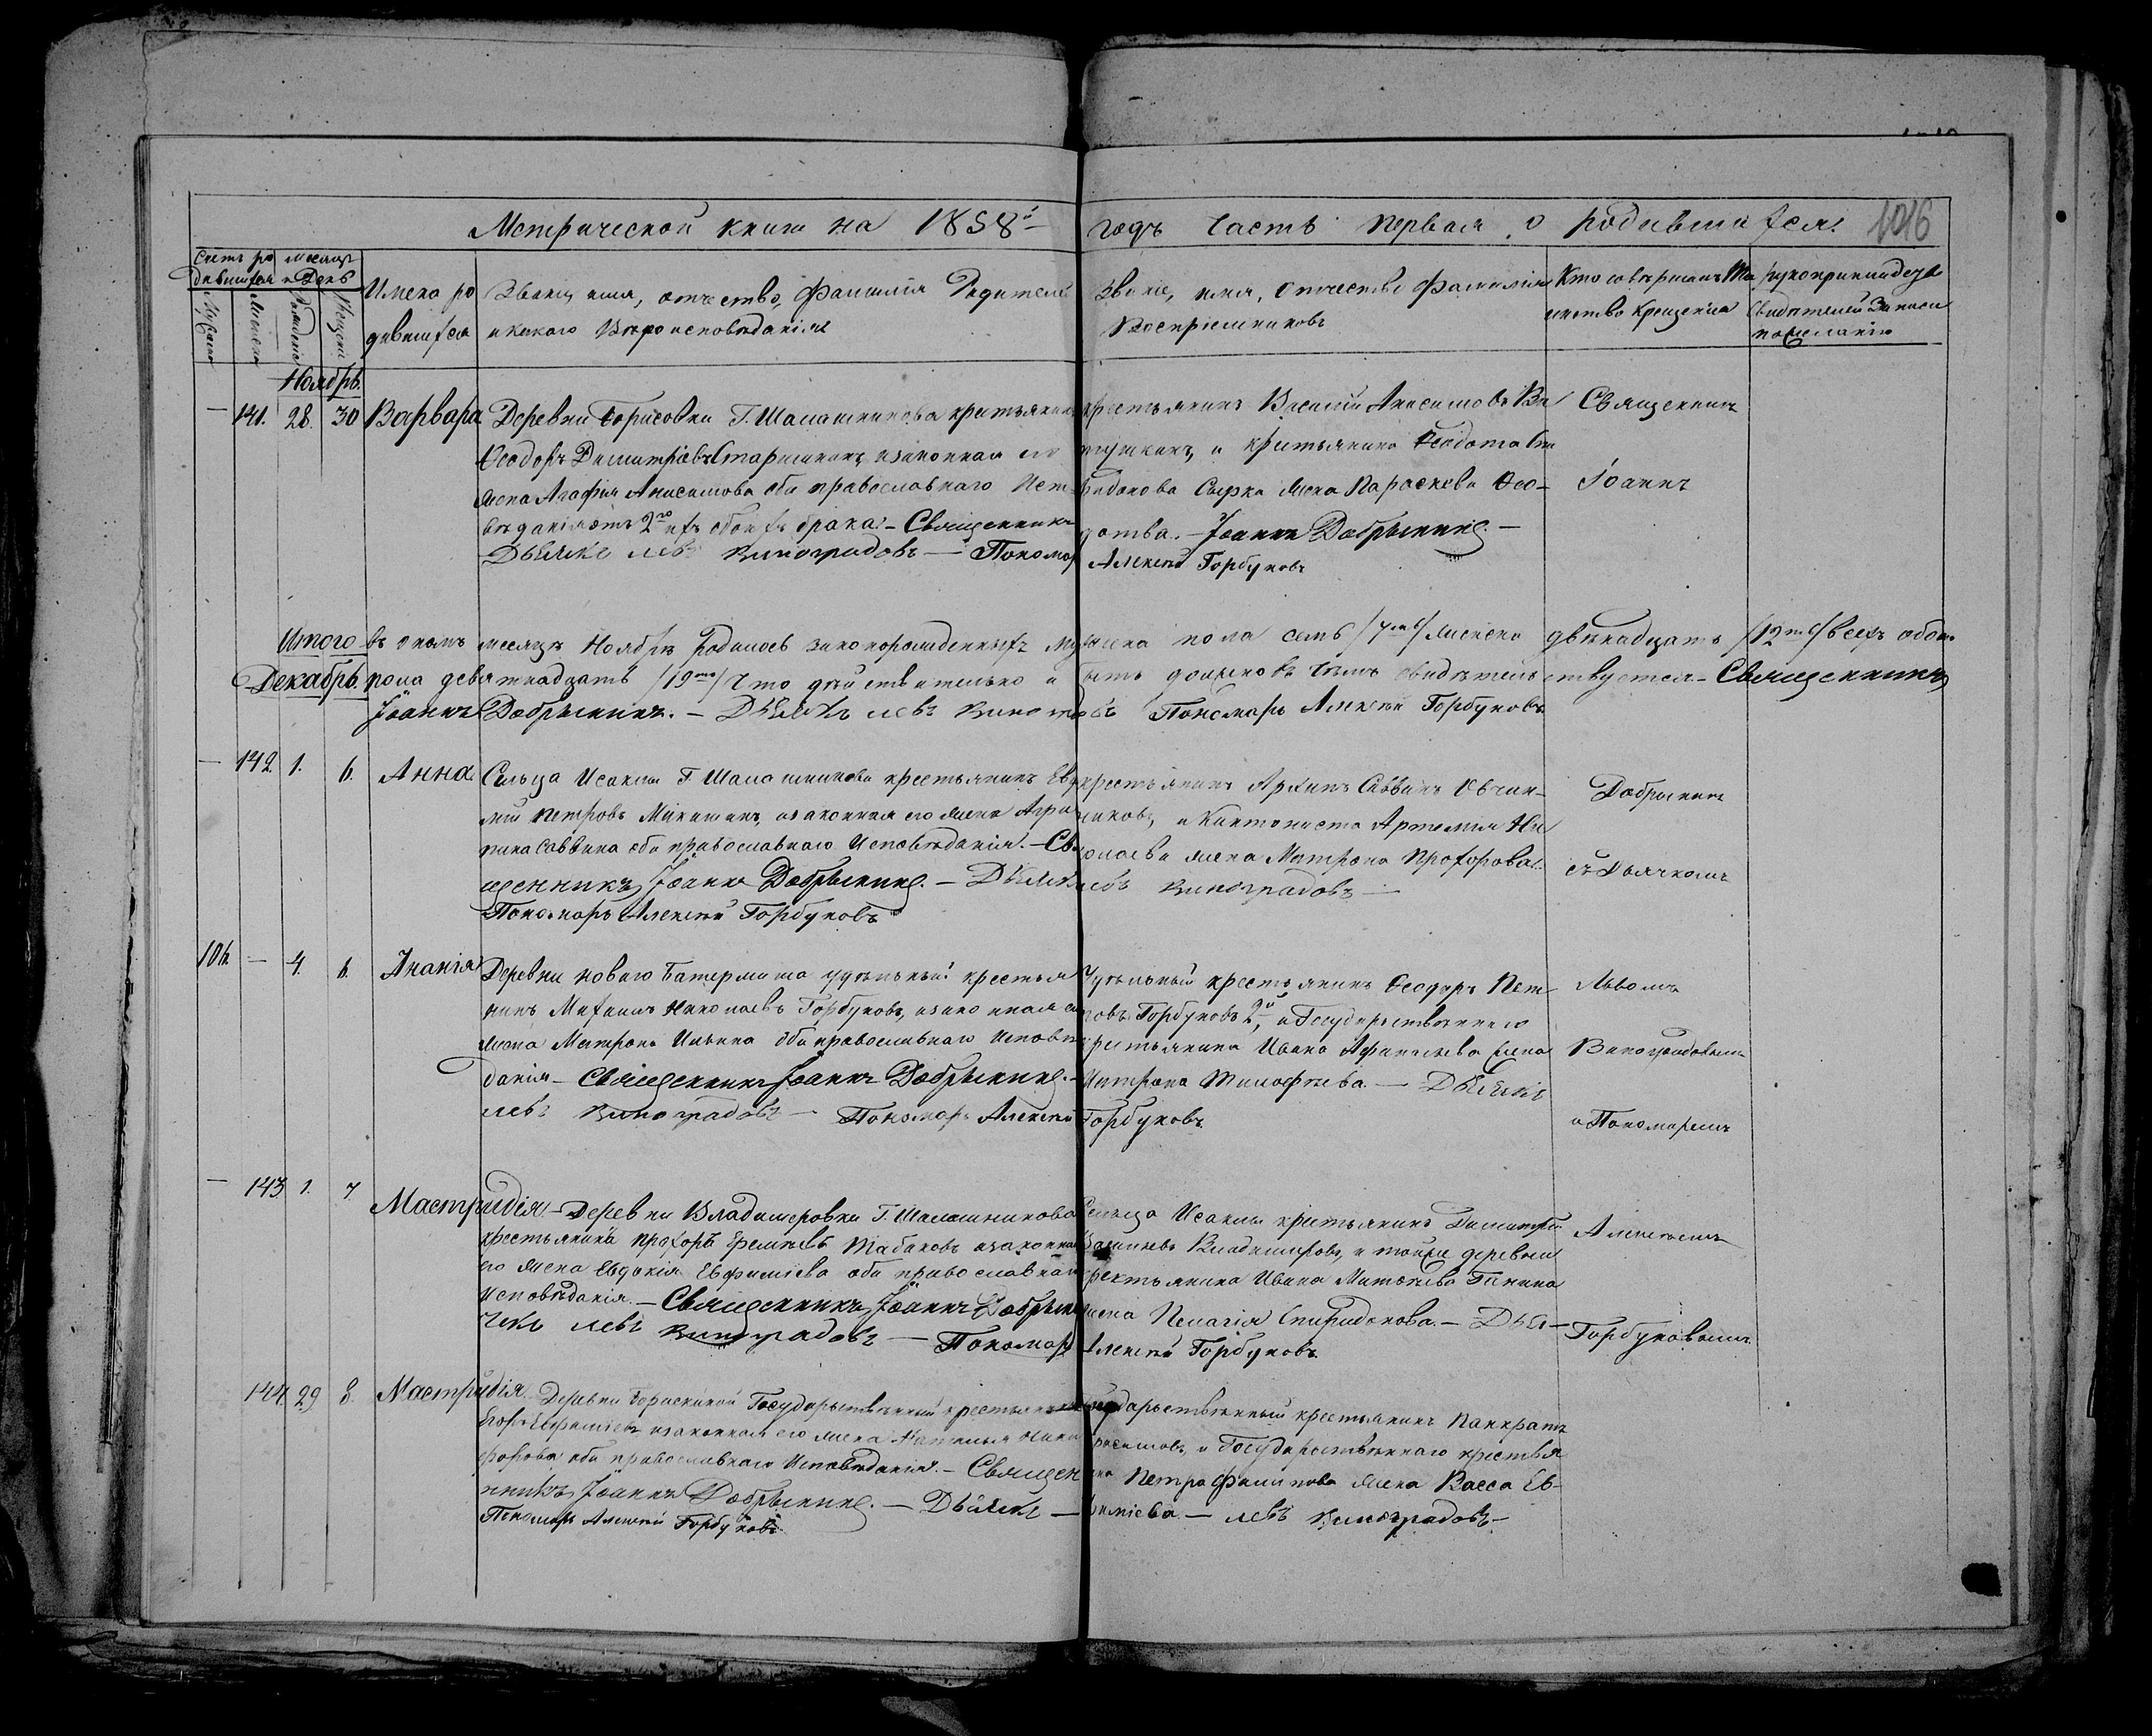 Метрической книги на 1858й годъ Часть первая о родившихся. 1016
Счетъ родившихся
Мужеска
Женска
Месяцъ и День
Рожденія
Крещенія
Имена родившихся
Званіе имя, отчество, фамилія Родителей
и какого Вероисповѣданія
Званіе, имя, Отчество фамилія
Воспріемниковъ
Кто совершалъ Та
инство Крещенія
рукоприкладство
Свидѣтелей Записи
по желанію
Ноябрь.
— 141. 28. 30 Варвара
Деревни Борисовки Г. Шалашникова крестьянинъ
Ѳеодоръ Димитріевъ Старшининъ, изаконная его
жена Агафія Анисимова оба православнаго Испо-
вѣданія отъ 2го ихъ обоихъ брака. — Священникъ
Дьячкъ левъ Виноградовъ — Пономарь
крестьянинъ Василій Анисимовъ
и крестьянина Ѳеодота Спи
ридонова жена Параскева Ѳео-
дотва. — Іоаннъ Добрынинъ. —
Алексѣй Горбуновъ
Священникъ
Іоаннъ
Итого въ ономъ месяцѣ Ноябрѣ Родилось законорожденныхъ мужеска пола семь /7мь/ женска двѣнадцать /12ть/ всехъ обоего
Декабрь. пола девятнадцать /19ть/ Что дѣйствительно и быть долженовъ чѣмъ свидѣтельствуется — Священникъ
Іоаннъ Добрынинъ. — Дьячкъ левъ Виноградовъ Пономарь Алексѣй Горбуновъ
— 142. 1. 6. Анна
Сельца Исаклы Г Шалашникова крестьянинъ Евфи
мій Петровъ Микишинъ, изаконная его жена Агри
пина Саввина оба православнаго Исповѣданія. — Свя
щенникъ Іоаннъ Добрынинъ. — Дьячкъ
Пономарь Алексѣй Горбуновъ
крестьянинъ Архипъ Саввинъ Овчин-
никовъ, и Кантониста Артемія Ни
колаева жена Матрона Прохорова.
левъ Виноградовъ —
Добрынинъ
съ Дьячкомъ
106. — 4. 6. Ананія
Деревни новаго Батермиша удѣльный крестья
нинъ Михаилъ Николаевъ Горбуновъ, изаконная его
жена Матрона Ильина оба православнаго Исповѣ
данія — Священникъ Іоаннъ Добрынинъ. —
левъ Виноградовъ — Пономарь Алексѣй
Удѣльный крестьянинъ Ѳеодоръ Пет-
ровъ Горбуновъ 2й, и Государственнаго
крестьянина Ивана Афанасьева жена
Матрона Тимофѣева. — Дьячкъ
Горбуновъ
Львомъ
Виноградовымъ
и Пономаремъ
— 143 1. 7. Мастридія
Деревни Владимеровки Г. Шалашникова
крестьянинъ Прохоръ Еремѣевъ Табаковъ изаконная
его жена Евдокія Евфиміева оба православнаго
Исповѣданія. — Священникъ Іоаннъ Добрынинъ
чекъ левъ Виноградовъ — Пономарь
Сельца Исаклы крестьянинъ Димитрій
Владимировъ, и тойже деревни
крестьянина Ивана Матвѣева Ганина
жена Пелагія Спиридонова. — Дья-
Алексѣй Горбуновъ
Алексѣемъ
Горбуновымъ.
144. 29 8. Мастридія
Деревни Борискиной Государственный крестьянинъ
Егоръ Евфиміевъ изаконная его жена Наталья Ники
форова оба православнаго Исповѣданія. — Священ
никъ Іоаннъ Добрынинъ. — Дьячкъ —
Пономарь Алексѣй Горбуновъ
Государственный крестьянинъ Панкратъ
и Государственнаго крестья
нина Петра Филипова жена Васса Ев-
фиміева. — левъ Виноградовъ —